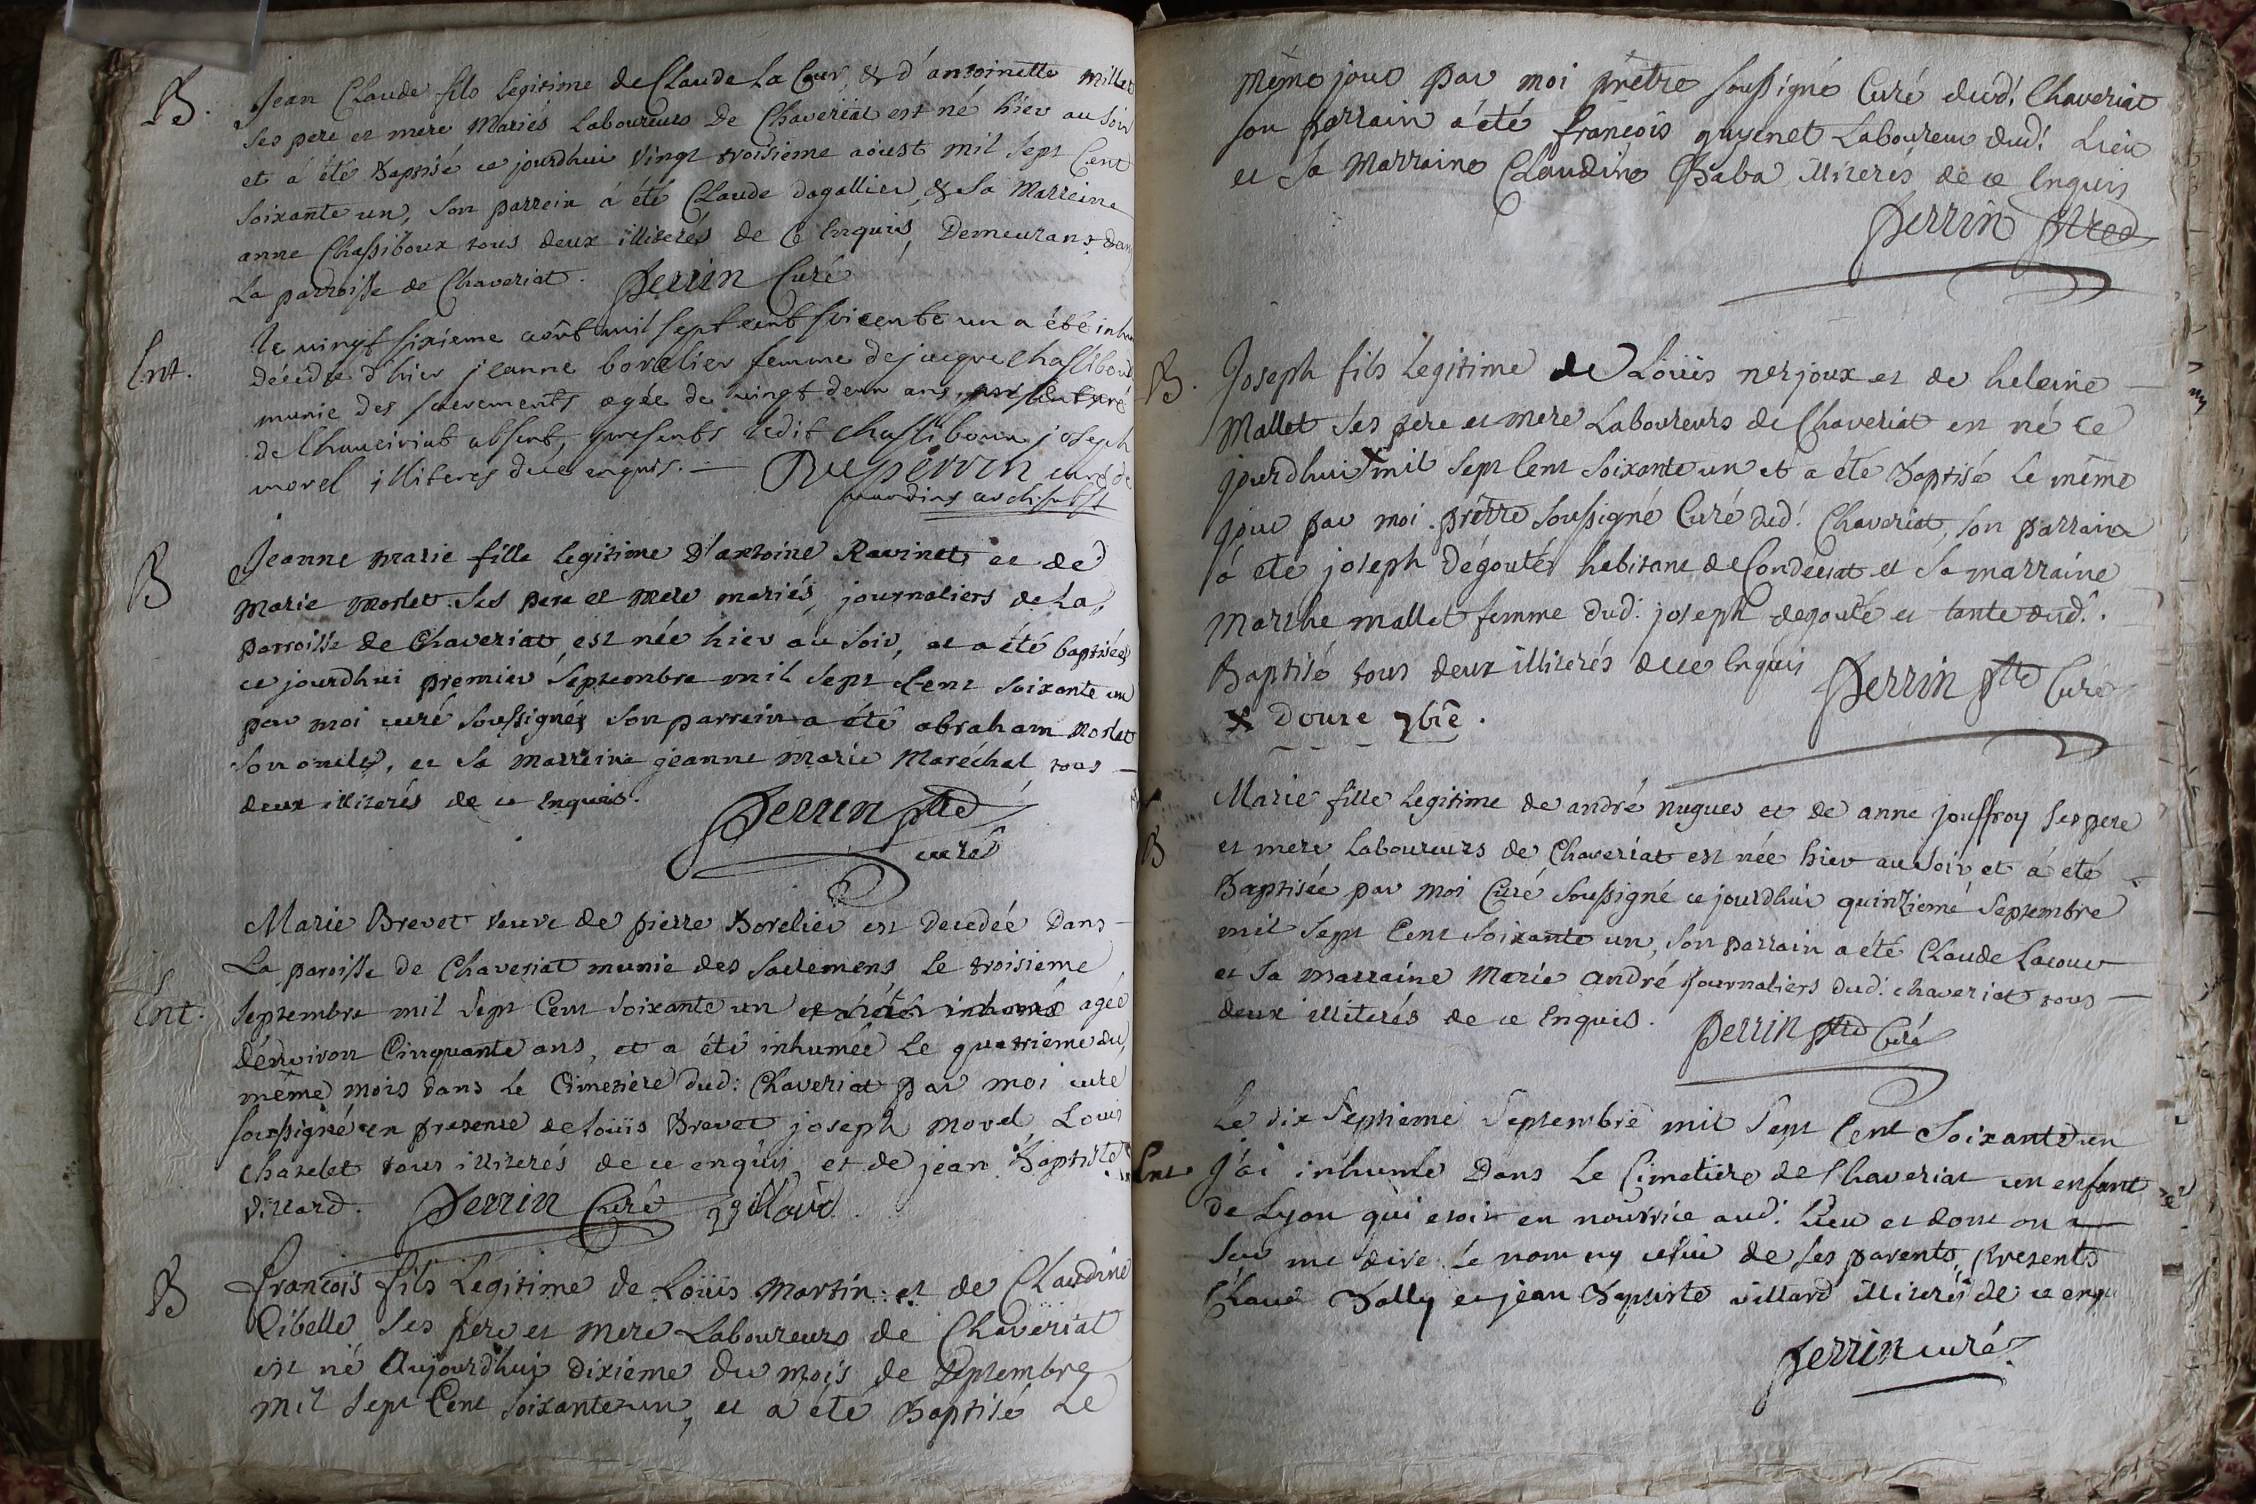 B.
Jean Claude fils legitime de Claude La Cour, & d'antoinette millet
ses pere et mere Mariés Laboureurs de Chaveriat est né hier au soir
et à été Baptisé ce jourdhui vingt troisieme aoust mil sept Cent
soixante un, son parrein à été Claude dagallier, & sa Marreine
anne Chassiboux tous deux illiterés de ce Enquis, Demeurans dans
La parroisse de Chaveriat. Perrin Curé
Ent.
le vingt sixieme août mil sept cent soicente un a été inhu
décédée d'hier jeanne borelier femme de jacque chassiboux
munie des sacrements agée de vingt deux ans, curé
de Chaveiriat absent, presents ledit chassiboux joseph
morel illiterés de ce enquis. — Duperrin curé de
B
Jeanne marie fille legitime d'antoine Ravinet, et de
Marie morlet. Ses pere et mere mariés, journaliers de La
parroisse de Chaveriat, est née hier au soir, et a été baptisée
ce jourdhui premier septembre mil sept Cent soixante un
par moi curé soussigné, son parrein a été abraham morlet
son oncle, et sa marreine jeanne marie Maréchal, tous —
deux illiterés de ce Enquis.
Perrin ptre
curé
Marie Brevet veuve de pierre Borelier est decedée Dans —
La paroisse de Chaveriat munie des sacremens le troisieme
Ent.
septembre mil sept Cent soixante un et a été inhumé agée
d'environ Cinquante ans, et a été inhumée le quatrieme du
même mois dans le Cimetiere dud: Chaveriat par moi curé
soussigné en presence de Loüis Brevet joseph morel Louis
Chatelet tous illiterés de ce enquis, et de jean Baptiste
Villard. Perrin Curé Villard
B
françois fils Legitime de Loüis Martin et de Claudine
Cibelle ses pere et mere Laboureurs de Chaveriat
est né Aujourdhui dixième du mois de septembre
mil sept Cent soixante un, et a été Baptisé le
même jour par moi prêtre soussigné Curé dud! Chaveriat
son parrain a été françois guyenet Laboureur dud! Lieu
et sa Marraine Claudine Baba illiterés de ce Enquis
Perrin ptre
B.
Joseph fils Legitime de Loüis nerjoux et de heleine —
Mallet ses pere et mere Laboureurs de Chaveriat est né ce
jourdhui x mil sept Cent soixante un et a été Baptisé le même
jour par moi prêtre soussigné Curé dud! Chaveriat, son parrain
à été joseph dégouté, habitant de Condeciat et sa marraine
marthe mallet femme dud: joseph degouté et tante dud!.
Baptisé tous deux illiterés de ce Enquis Perrin ptre Curé
x douze 7bre.
B
Marie fille Legitime de andré nugues et de anne jouffroy ses pere
et mere Laboureurs de Chaveriat est née hier au soir et à été
Baptisée par moi Curé soussigné ce jourdhui quinzieme septembre
mil sept Cent soixante un, son parrain a été Claude Lacour
et sa marraine Marie andré journaliers dud: chaveriat tous —
deux illiterés de ce Enquis. Perrin ptre Curé
Le dix septieme septembre mil sept Cent soixante un
Ent
j'ai inhumé Dans le Cimetiere de Chaveriat un enfant
de Lyon qui etoit en nourrice aud: lieu et dont on n
scu me dire le nom ny celui de ses parents, Presents
Claude Bally et jean Baptiste villard illiterés de ce enqu
Perrin curé